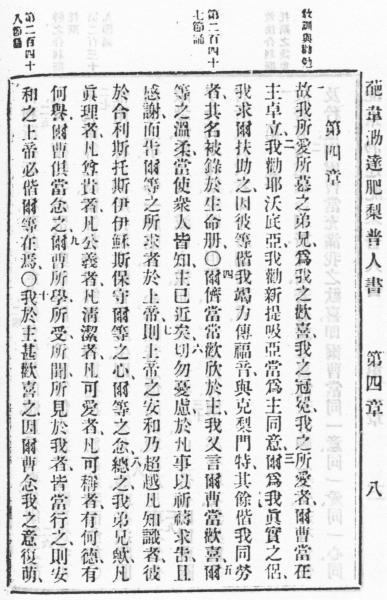 葩韋泐達肥梨普人書 第四章 八
敎訓與勸勉
第四章
故我所愛所慕之弟兄爲我之歡喜我之冠冕我之所愛者爾曹當在
主卓立二我勸耶沃底亞我勸新提吸亞當爲主同意三爾爲我眞實之侶
我求爾扶助之因彼等偕我竭力傳福音與克梨門特其餘偕我同勞
第二百四十七節誦
者其名被錄於生命册〇四爾儕當常歡欣於主我又言爾曹當歡喜五爾
等之溫柔當使衆人皆知主已近矣六切勿憂慮於凡事以祈禱求告且
感謝而告爾等之所求者於上帝則上帝之安和乃超越凡知識者彼
於合利斯托斯伊伊穌斯保守爾等之心爾等之念八總之我弟兄歟凡
眞理者凡尊貴者凡公義者凡清潔者凡可愛者凡可稱者有何德有
何譽爾曹俱當念之九爾曹所學所受所聞所見於我者皆當行之則安
第二百四十八節誦
和之上帝必偕爾等在焉〇十我於主甚歡喜之因爾曹念我之意復萌